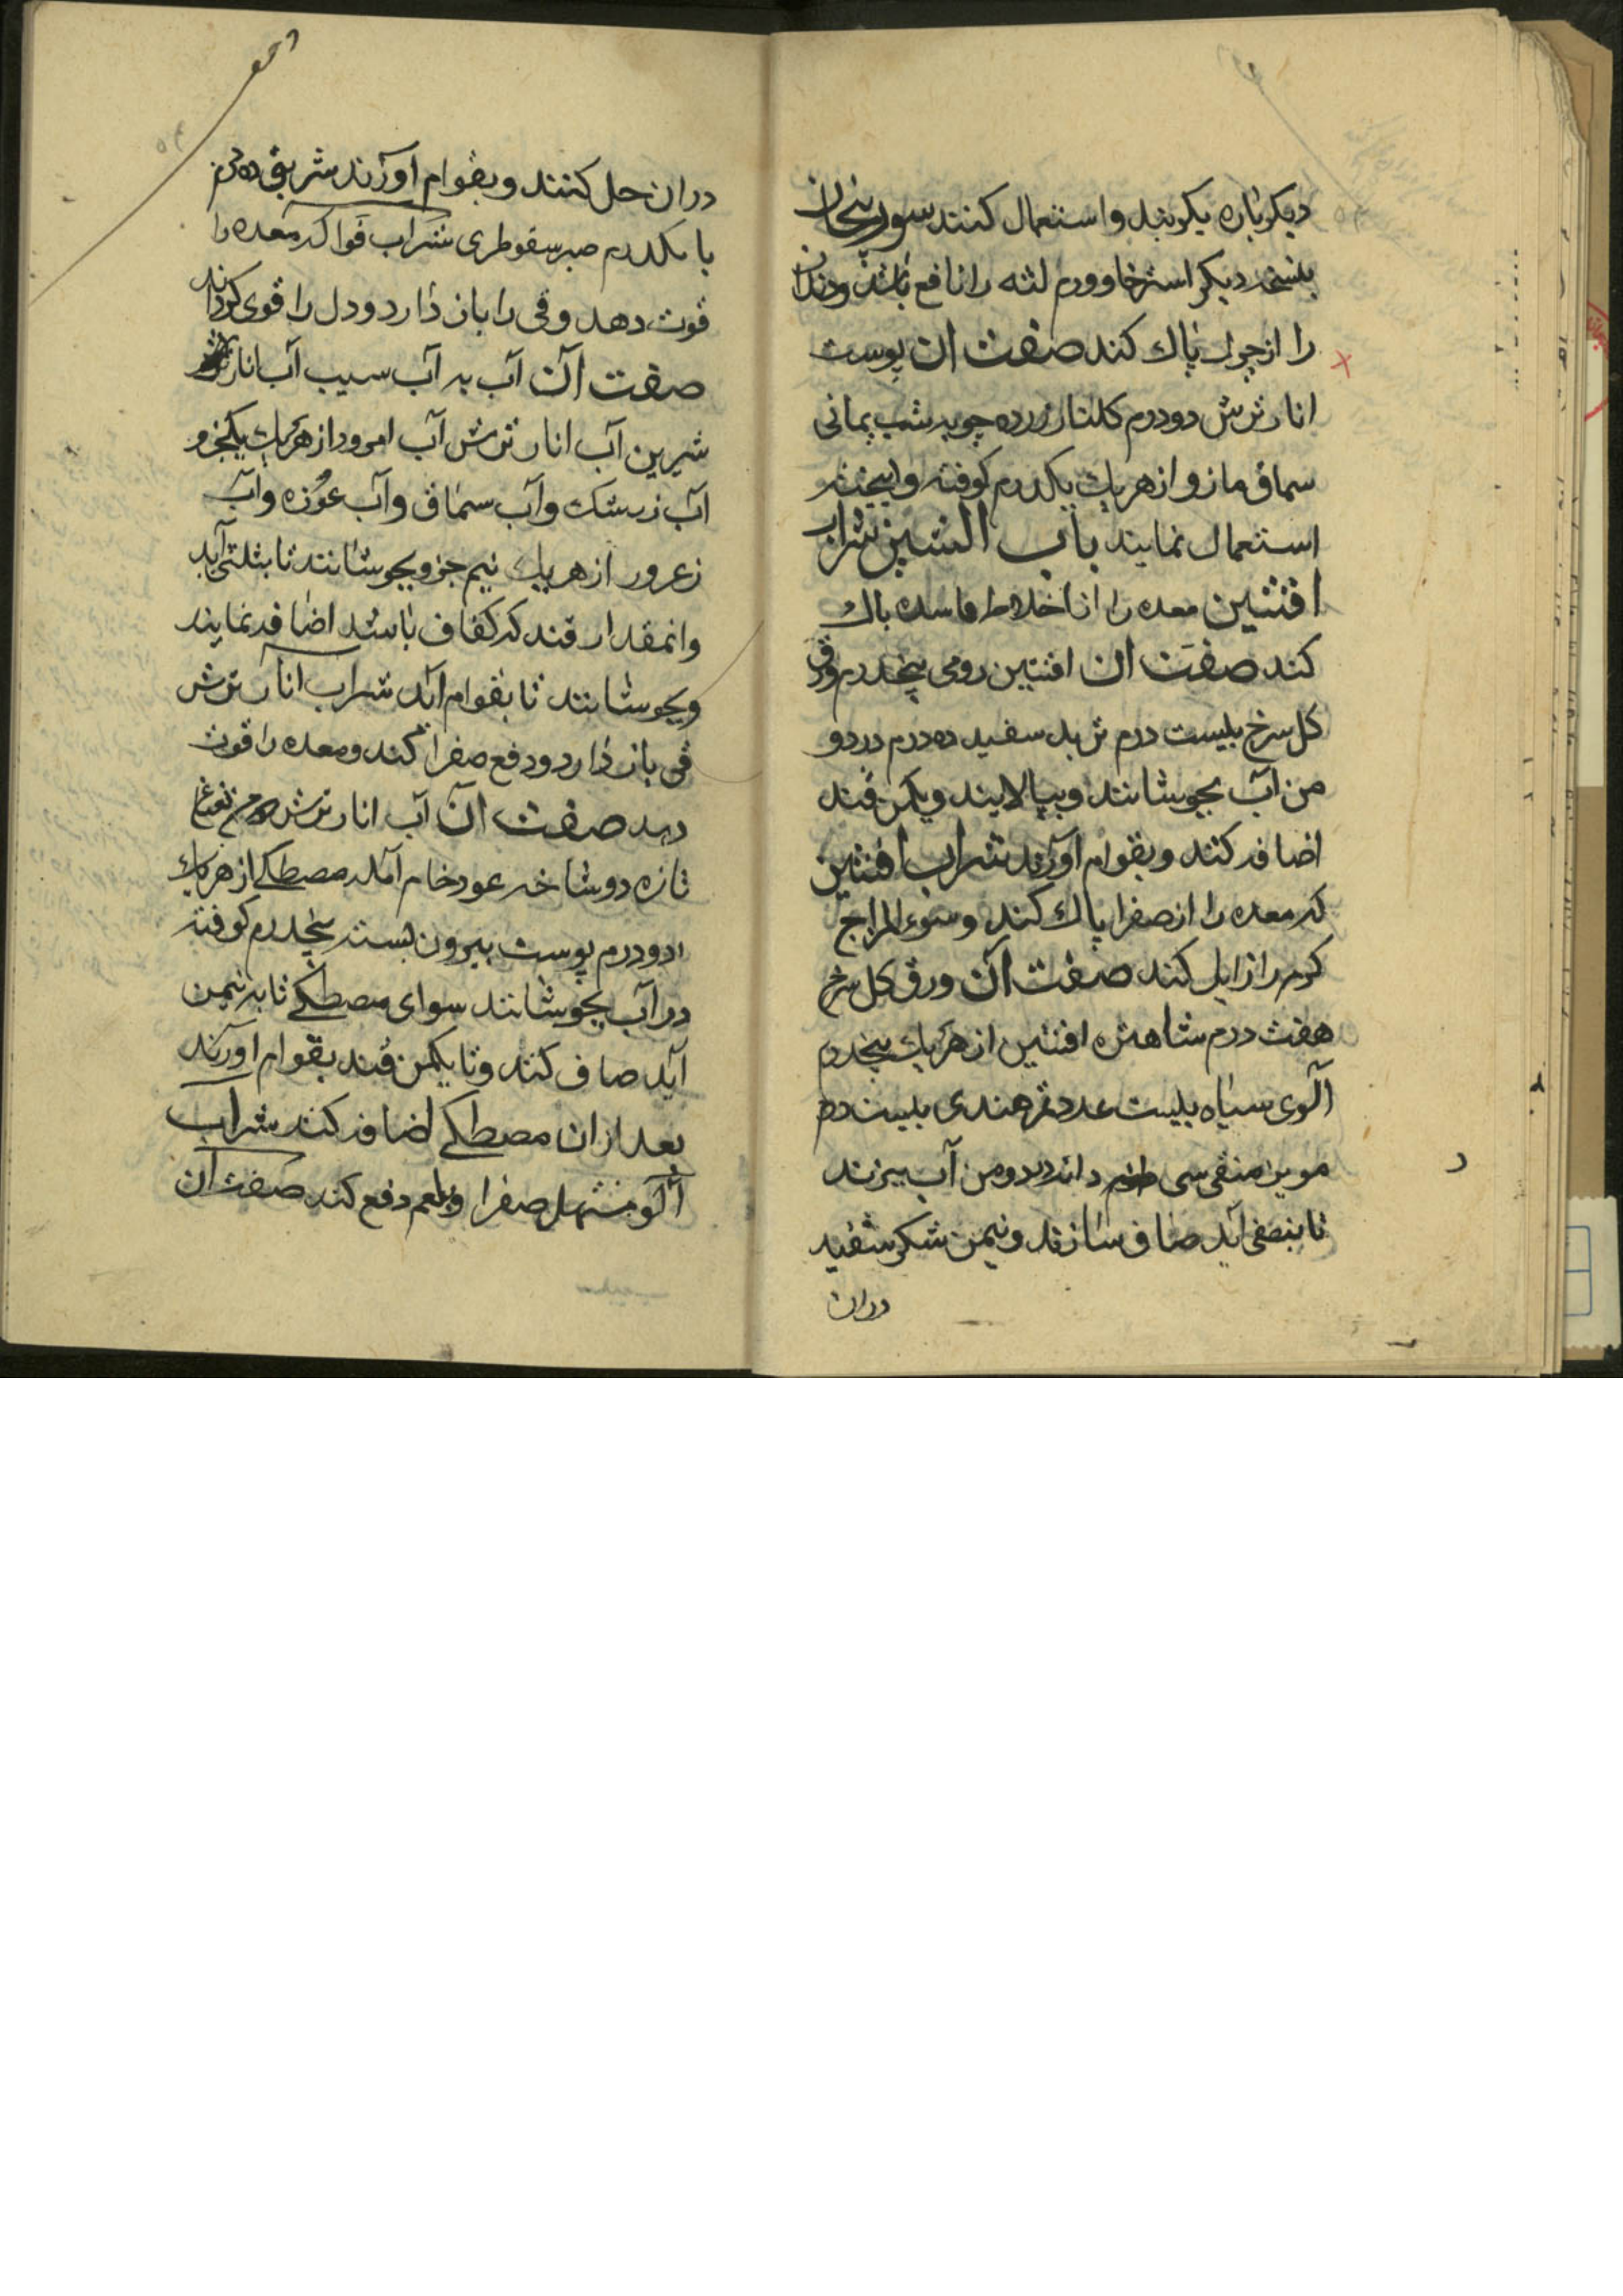 دیکرباره بکوبند و استعمال کنند سورنجان
بنسخه دیکر استرخا و ورم لثه را نافع باشد و دندان
را از چرك پاك کند صفت ان پوست
انار ترش دو درم کلنار زرده چوبه شب یمانی
سماق مازو از هریك یکدرم کوفته و بیخته
استعمال نمایند باب الشین شراب
افتنین معده را از اخلاط فاسده پاك
کند صفت ان افتنین رومی پنجدرم ورق
کل سرخ بلیست درم تربد سفید ده درم در دو
من آب بجوشانند و بپالایند و یکمن قند
اضافه کنند و بقوام اورند شراب افنتین
که معده را از صفرا پاك کند و سوء المزاج
کرم را زایل کند صفت آن ورق کل سرخ
هفت درم شاهتره افنتین از هریك پنجدرم
آلوی سیاه بلیست عدد تمر هندی بلیست درم
مویز منقی سی دانه در دو من آب بپزند
تا بنصفی آید صاف سازند و نیمن شکر سفید
دران
دران حل کنند و بقوام آورند شربتی ده درم
با یکدرم صبر سقوطری شراب فواکه معده را
قوت دهد و قی را باز دارد و دل را قوی کرداند
صفت آن آب به آب سیب آب انار
شیرین آب انار ترش آب امرود از هریك یکجزو
آب زرشك و آب سماق و آب غوزه و آب
زعرور از هریك نیم جزو بجوشانند تا بثلثی آید
وانمقدار قند که کفاف باشد اضافه نمایند
وبجوشانند تا بقوام آید شراب انار ترش
قی باز دارد و دفع صفرا کند و معده را قوت
دهد صفت ان آب انار ترش نعناع
تازه دو شاخه عود خام آمله مصطکی از هریك
دو درم پوست بیرون پسته پنجدرم کوفته
در آب بجوشانند سوای مصطکی تا به نیمن
آید صاف کنند و تا یکمن قند بقوام اورند
بعد ازان مصطکی اضافه کنند شراب
آلو مسهل صفرا و بلغم دفع کند صفت آن